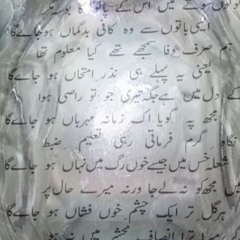 باتوں سے وہ کافی بدگماں ہو جائے گا
ہم صرفِ وفا سمجھے تھے کیا معلوم تھا
یعنی یہ پہلے ہی نذرِ امتحاں ہو جائے گا
کے دل میں ہے جگہ تیری جو تو راضی ہوا
مجھ پہ گویا اک زمانہ مہرباں ہو جائے گا
نگاہِ گرم فرماتی رہی تعلیمِ ضبط
شعلہ خس میں جیسے خوں رگ میں نہاں ہو جائے گا
مجھ کو نہ لے جا ورنہ میرے حال پر
ہر گلِ تر ایک چشمِ خوں فشاں ہو جائے گا
میرا ترا انصاف محشر میں نہ ہو